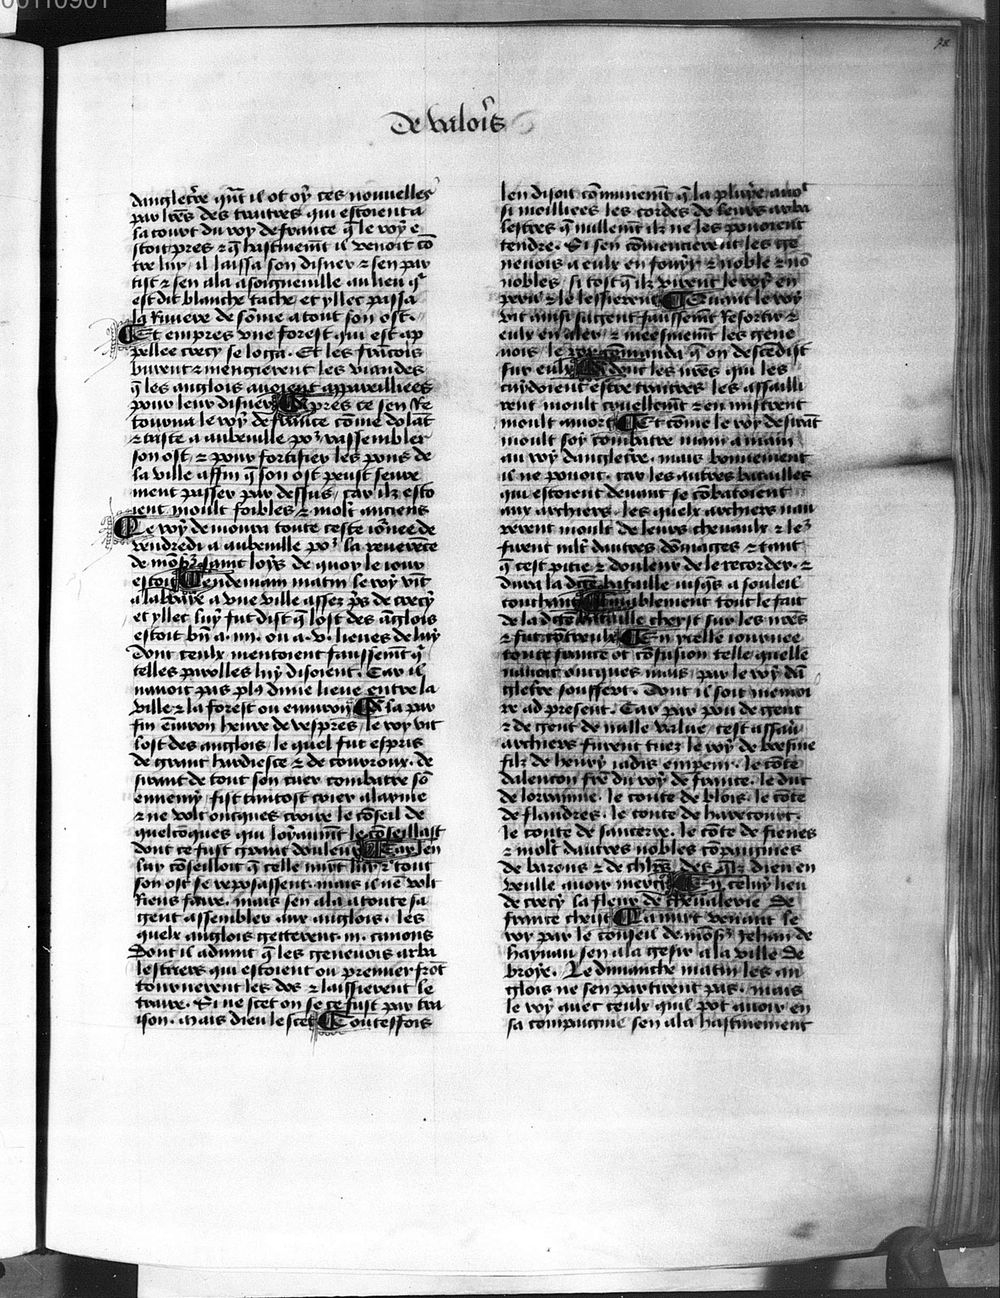 00110901
98
de valoıs
dangletr̃e qñt il ot oÿ ces nouuelles
par lr̃es des traitres qui estoient a
la court du roy de france q̃ le roy e
stoit pres ⁊ q̃ hastiuem̃t il venoit cõ
tre luy, il laissa son disner ⁊ sen par
tist ⁊ sen ala a soigneuille au lieu q̃
est dit blanche tache et yllec passa
la Riuiere de sõme a tout son ost.
Et empres vne forest qui est ap
pellee crecy se loga. Et les frãcois
burent ⁊ mengierent les viandes
q̃ les anglois auoient appareilliees
pour leur disner Apres ce sen Re
tourna le roy de france cõme dolãt
⁊ triste a abbeuille po᷑ rassembler
son ost, ⁊ pour fortifier les pons de
la ville affin q̃ son ost peust seure
ment passer par dessus, car ilz esto
ient moult foibles ⁊ molt anciens
Le roy demoura toute ceste iõnee de
vendredi a abbeuille po᷑ la reuerẽce
de mõs᷑ saint loÿs de quoy le iour
estoit Lendemain matin le roy vit
a labbaÿe a vne ville assez p̃s de crecÿ
et yllec luÿ fut dist q̃ lost des ãglois
estoit bñ a .iiii. ou a .v. lieues de luÿ
dont ceulx mentoient faussem̃t q̃
telles parolles luy disoient. Car il
nauoit pas pl9 dune lieue entre la
ville ⁊ la forest ou enuiron A la par
fin enuiron heure de vespres le roy vit
lost des anglois le quel fut espris
de grant hardiesce ⁊ de courroux. de
sirant de tout son cuer combatre sõ
ennemy fist tantost crier alarme
⁊ ne volt oncques croire le cõseil de
quelcõques qui loyaum̃t le cõseillast
dont ce fust grant douleur Car len
luy cõseilloit q̃ celle nuyt luy ⁊ tout
son ost se reposassent. mais il nẽ volt
Riens faire. mais sen ala a toute sa
gent assembler aux anglois. les
quelx anglois getterent .iii. canons
dont il aduint q̃ les geneuois arba
lestriers qui estoient ou premier frõt
tournerent les dos ⁊ laissierent le
traire. Si ne scet on se ce fust par tra
ison. mais dieu le scet Toutesfois
len disoit cõmunem̃t q̃ la pluÿe auoit
si moilliees les cordes de leurs arba
lestres q̃ nullem̃t ilz ne les pouoient
tendre. Si sen cõmencierent les ge
neuois a eulx en fouÿr ⁊ noble ⁊ nõ
nobles si tost q̃ ilz virent le roy en
peril ⁊ le lessierent Quant le roy
vit ainsi sa gent faussem̃t Resortir ⁊
eulx en aler ⁊ meesmem̃t les gene
uois le roy comanda q̃ on descẽdist
sur eulx Adont les nr̃es qui les
cuydoient estre traitres les assailli
rent moult cruellem̃t ⁊ en mistrent
moult a mort Et cõme le roÿ desirãt
moult soy combatre main a main
au roy dangletr̃e. mais bonnement
il ne pouoit. car les autres batailles
qui estoient deuant se cõbatoient
aux archiers. les quelx archiers nau
rerent moult de leurs cheuaulx ⁊ lez
firent ml̃t dautres dõmages ⁊ tant
q̃ cest pitie ⁊ douleur de le recorder. ⁊
dura la d̃ce bataille iusq̃s a souleil
couchant finablement tout le fait
de la d̃ce bataille cheÿst sur les nr̃es
⁊ fut cõtr eulx En ycelle iournee
toute france ot cõfusion telle quelle
nauoit oncques mais par le roy dã
gletre souffert. Dont il soit memoi
re ad present. Car par pou de gent
⁊ de gent de nulle value cest assauĩ
archiers furent tuez le roÿ de boesme
filz de henry iadis emper̃. le cõte
dalencon fr̃e du roÿ de france. le duc
de lorrainne. le conte de blois. le cõte
de flandres. le conte de harecourt.
le conte de sancerre. le cõte de fienes
⁊ molt dautres nobles cõpaignies
de barons ⁊ de chlr̃s des q̃lz dieu en
veulle auoir mercy En celuy lieu
de crecy la fleur de cheualerie de
france cheist La nuit venant le
roy par le conseil de mõs᷑ jehan de
haynau sen ala gesir a la ville de
broye. Le dimanche matin les an
glois ne sen partirent pas. mais
le roÿ auec ceulx quil pot auoir en
sa compaignie sen ala hastiuement